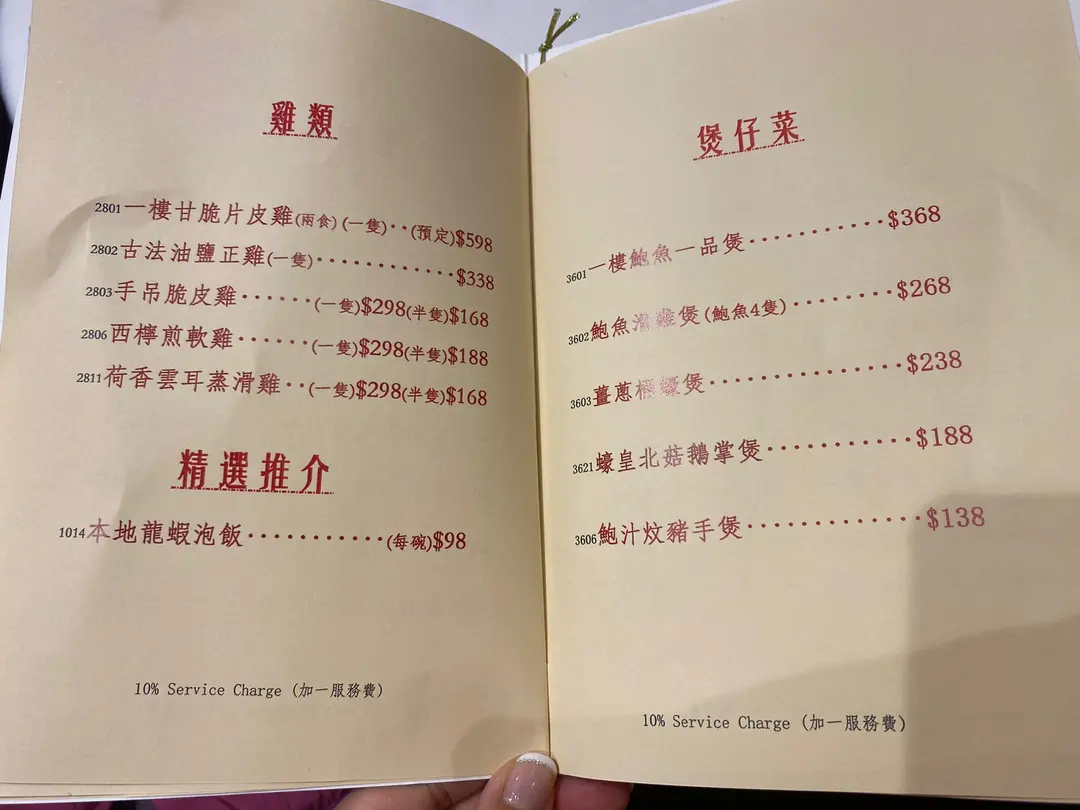 雞類
2801一樓甘脆片皮雞(兩食)(一隻)··(預定)$598
2802古法油鹽正雞(一隻)············$338
2803手吊脆皮雞······(一隻)$298(半隻)$168
2806西檸煎軟雞······(一隻)$298(半隻)$188
2811荷香雲耳蒸滑雞··(一隻)$298(半隻)$168
精選推介
1014本地龍蝦泡飯···········(每碗)$98
10% Service Charge (加一服務費)
煲仔菜
3601一樓鮑魚一品煲···········$368
3602鮑魚滑雞煲(鮑魚4隻)········$268
3603薑蔥桶蠔煲···············$238
3621蠔皇北菇鵝掌煲···········$188
3606鮑汁炆豬手煲·············$138
10% Service Charge (加一服務費)